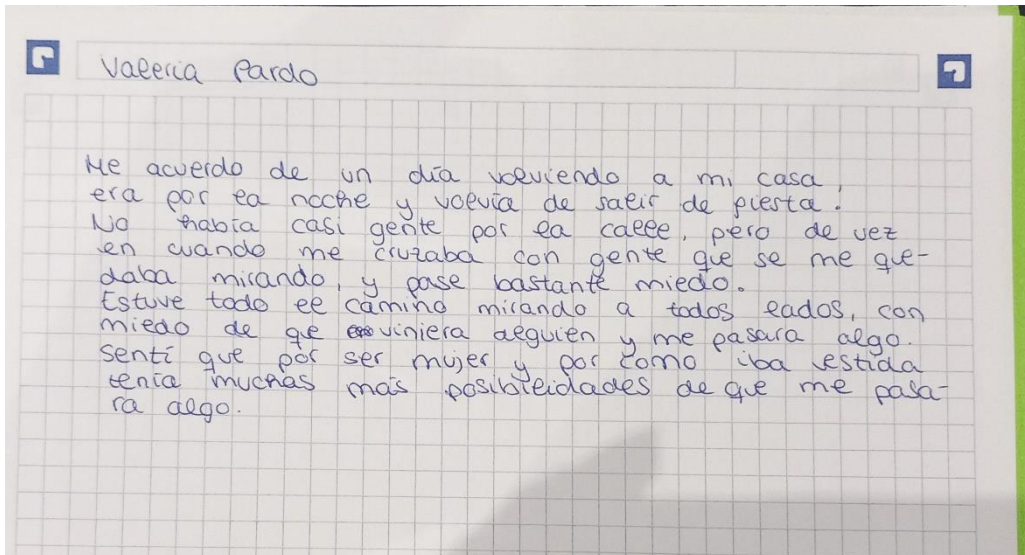 Valeria Pardo
Me acuerdo de un día volviendo a mi casa,
era por la noche y volvía de salir de fiesta.
No había casi gente por la calle, pero de vez
en cuando me cruzaba con gente que se me que-
daba mirando, y pase bastante miedo.
Estuve todo el camino mirando a todos lados, con
miedo de qe viniera alguien y me pasara algo.
sentí que por ser mujer y por como iba vestida
tenía muchas más posibilidades de que me pasa-
ra algo.